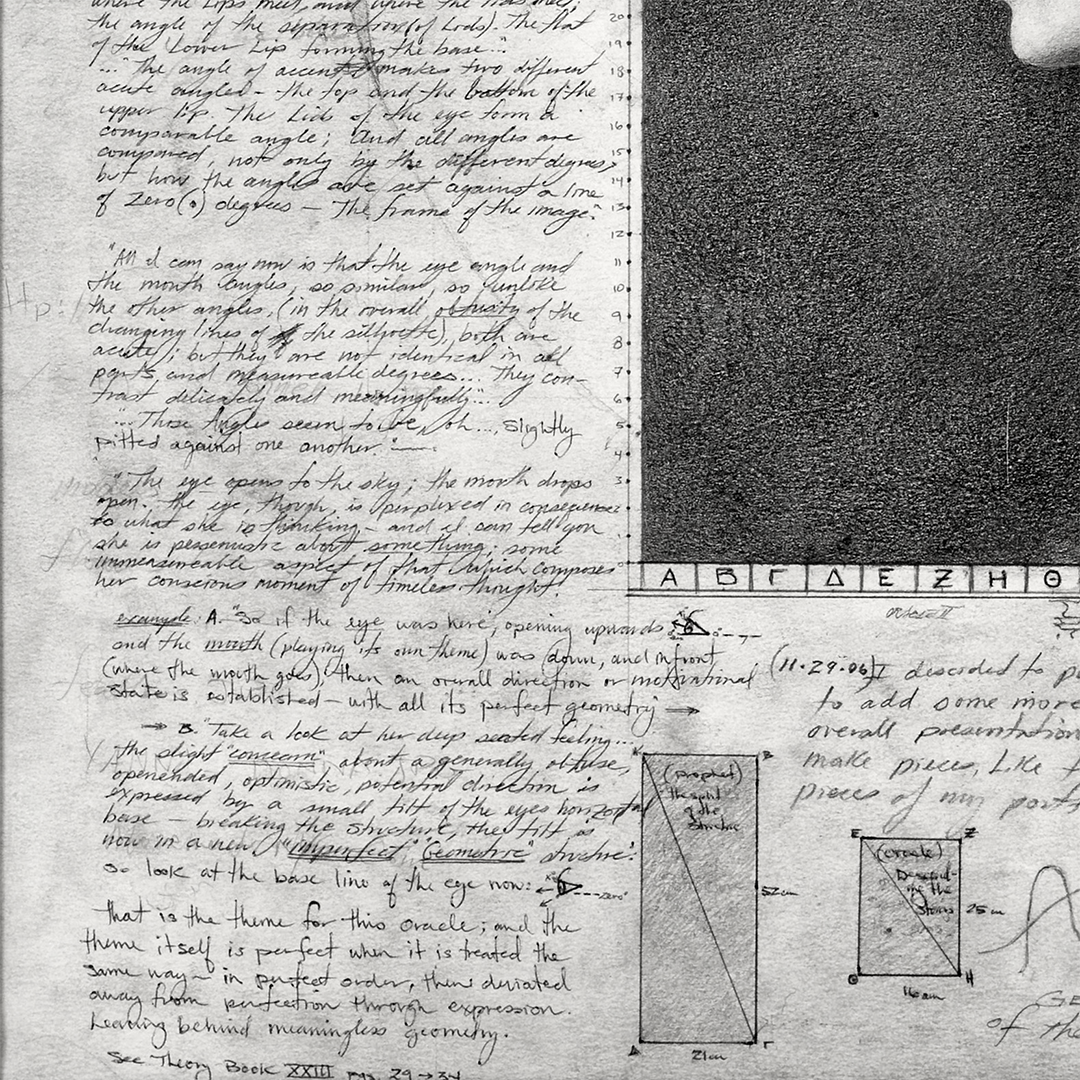 where the Lips meet, and where the lids meet;
the angle of the separation (of Lids). The flat
of the Lower Lip forming the base..."
..."The angle of accent makes two different
acute angles - the top and the bottom of the
upper lip. The Lids of the eye form a
comparable angle; And all angles are
compared, not only by the different degrees,
but how the angles are set against a line
of Zero (0) degrees — The frame of the image."
"All I can say now is that the eye angle and
the mouth angles, so similar, so unlike
the other angles, (in the overall obtusity of the
changing lines of the silhoette), both are
acute; but they are not identical in all
parts, and measureable degrees... They con-
trast delicately and meaningfully"...
..."Those Angles seem to be, oh..., slightly
pitted against one another."
"The eye opens to the sky; the mouth drops
open. the eye, though, is perplexed in consequence
to what she is thinking - and I can tell you
she is pessemistic about something; some
immeasureable aspect of that which composes
her conscious moment of timeless thought."
example: A. "So if the eye was here, opening upwards
and the mouth (playing its own theme) was down, and infront
(where the mouth goes) then an overall direction or motivational
state is established - with all its perfect geometry →
→ B. "Take a look at her deep seated feeling...
the slight "concern" about a generally obtuse,
openended, optimistic, potential direction is
expressed by a small tilt of the eyes horizontal
base — breaking the structure, the tilt is
now in a new "imperfect" "Geometric" structure".
So look at the base line of the eye now: zero°
that is the theme for this oracle; and the
theme itself is perfect when it is treated the
same way - in perfect order, then deviated
away from perfection through expression.
Leaving behind meaningless geometry.
See Theory Book XXIII pgs. 29 → 34
20
19
18
17
16
15
14
13
12
11
10
9
8
7
6
5
4
3
2
1
0
Α Β Γ Δ Ε Ζ Η Θ
(11.29.06) I descided to
to add some more
overall presentation
make pieces, Like
pieces of my
K B
(prophet)
the
of the
Structure
52cm
Δ Γ
21cm
E Z
(oracle)
Descend-
ing the
Stairs
25cm
Θ H
16cm
of the